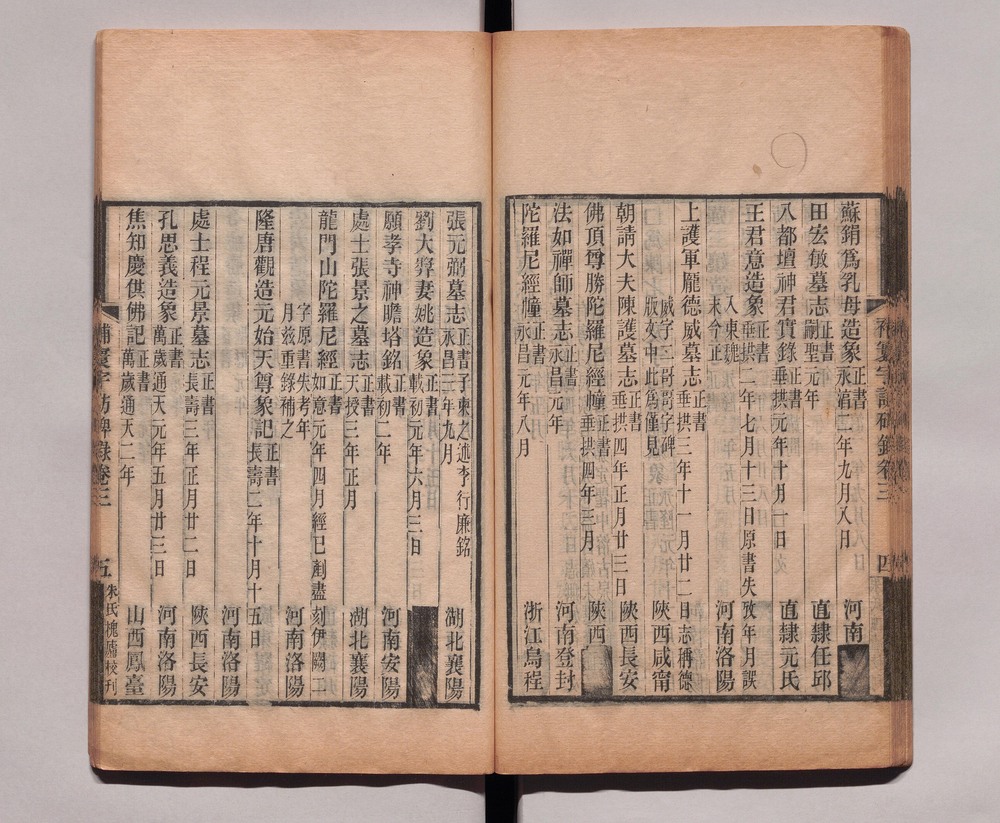 蘇絹爲乳母造象 正書 永湻二年九月八日 河南
田宏敏墓志 正書 嗣聖元年 直隸任邱
八都壇神君實錄 正書 垂拱元年十月一日 直隸元氏
王君意造象 正書 垂拱二年七月十三日原書失攷年月誤
入東魏末今正 河南洛陽
上護軍龐德威墓志 正書 垂拱三年十一月廿二日志稱德
威字二哥哥字碑版文中此爲僅見 陝西咸甯
朝請大夫陳護墓志 正書 垂拱四年正月廿三日 陝西長安
佛頂尊勝陀羅尼經幢 正書 垂拱四年三月 陝西
法如禪師墓志 正書 永昌元年 河南登封
陀羅尼經幢 正書 永昌元年八月 浙江烏程
補寰宇訪碑錄卷三 四
張元弼墓志 正書 子柬之述李行廉銘 永昌三年九月 湖北襄陽
劉大羿妻姚造象 正書 載初元年六月三日
願孝寺神瞻塔銘 正書 載初二年 河南安陽
處士張景之墓志 正書 天授三年正月 湖北襄陽
龍門山陀羅尼經 正書 如意元年四月經已剷盡刻伊闕二
字原書失考年月滋重錄補之 河南洛陽
隆唐觀造元始天尊象記 正書 長壽二年十月十五日
河南洛陽
處士程元景墓志 正書 長壽三年正月廿二日 陝西長安
孔思義造象 正書 萬歲通天元年五月廿三日 河南洛陽
焦知慶供佛記 正書 萬歲通天二年 山西鳳臺
補寰宇訪碑錄卷三 五 朱氏槐廬校刊